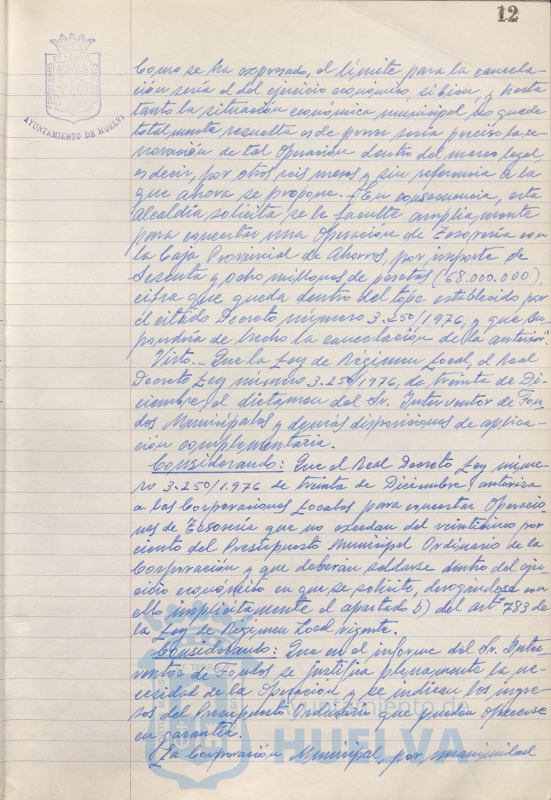 12
AYUNTAMIENTO DE HUELVA
Como se ha expresado, el límite para la cancela-
ción sería el del ejercicio económico, si bien y hasta
tanto la situación económica municipal no quede
totalmente resuelta es de prever sería preciso la re-
novación de tal Operación dentro del marco legal,
es decir, por otros seis meses y sin referencia a la
que ahora se propone. En consecuencia, esta
Alcaldía solicita se le faculte ampliamente
para concertar una Operación de Tesorería con
la Caja Provincial de Ahorros, por importe de
Sesenta y ocho millones de pesetas (68.000.000),
cifra que queda dentro del tope establecido por
el citado Decreto número 3.250/1976, y que su-
pondría de hecho la cancelación de la anterior".
Visto.- Que la Ley de Régimen Local, el Real
Decreto Ley número 3.250/1976, de treinta de Di-
ciembre, el dictamen del Sr. Interventor de Fon-
dos Municipales y demás disposiciones de aplica-
ción complementaria.
Considerando: Que el Real Decreto Ley núme-
ro 3.250/1.976 de treinta de Diciembre, autoriza
a las Corporaciones Locales para concertar Operacio-
nes de Tesorería que no excedan del veinticinco por
ciento del Presupuesto Municipal Ordinario de la
Corporación y que deberán saldarse dentro del eje-
cicio económico en que se solicite, derogándose con
ello implícitamente el apartado b) del artº 783 de
la Ley de Régimen Local vigente.
Considerando: Que en el informe del Sr. Inter-
ventor de Fondos se justifica plenamente la ne-
cesidad de la Operación y se indican los ingre-
sos del Presupuesto Ordinario que pueden ofrecerse
en garantía.
La Corporación Municipal, por unanimidad
Ayuntamiento de
HUELVA